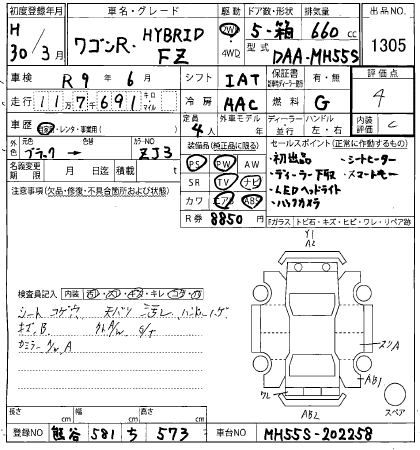 初度登録年月 車名・グレード 駆動 ドア数・形状 排気量 出品NO
H 30/3月 ワゴンR. HYBRID FZ 2WD 4WD 5・箱 660 cc 1305
型式 DAA-MH55S
車検 R 9年 6月 シフト IAT 保証書 有・無 評価点 4
走行 11万7千691 キロ マイル 冷房 AAC 燃料 G
車歴 自家用・レンタ・事業用( ) 定員 4人 外車モデル 年 ディーラー 並行 ハンドル 左・右 内装評価 C
外色 元色 ブラック → 色替 カラーNO ZJ3
装備品(純正品に限る) セールスポイント(正常に作動するもの)
名義変更期限 月 日迄 積載量 t
PS PW AW
SR TV ナビ
カワ エアB ABS
R券 8850 円
・初出品 ・シートヒーター
・ディーラー下取 ・スマートキー
・LEDヘッドライト
注意事項(欠品・修復・不具合箇所および状態)
Fガラス トビ石・キズ・ヒビ・ワレ・リペア跡
Y1
A2
検査員記入 内装
シート コゲ穴
キズ. B
A
AB1
ワレ
AB2
スペア
長さ cm 幅 cm 高さ cm
登録NO 熊谷 581 ち 573 車台NO MH55S-202258